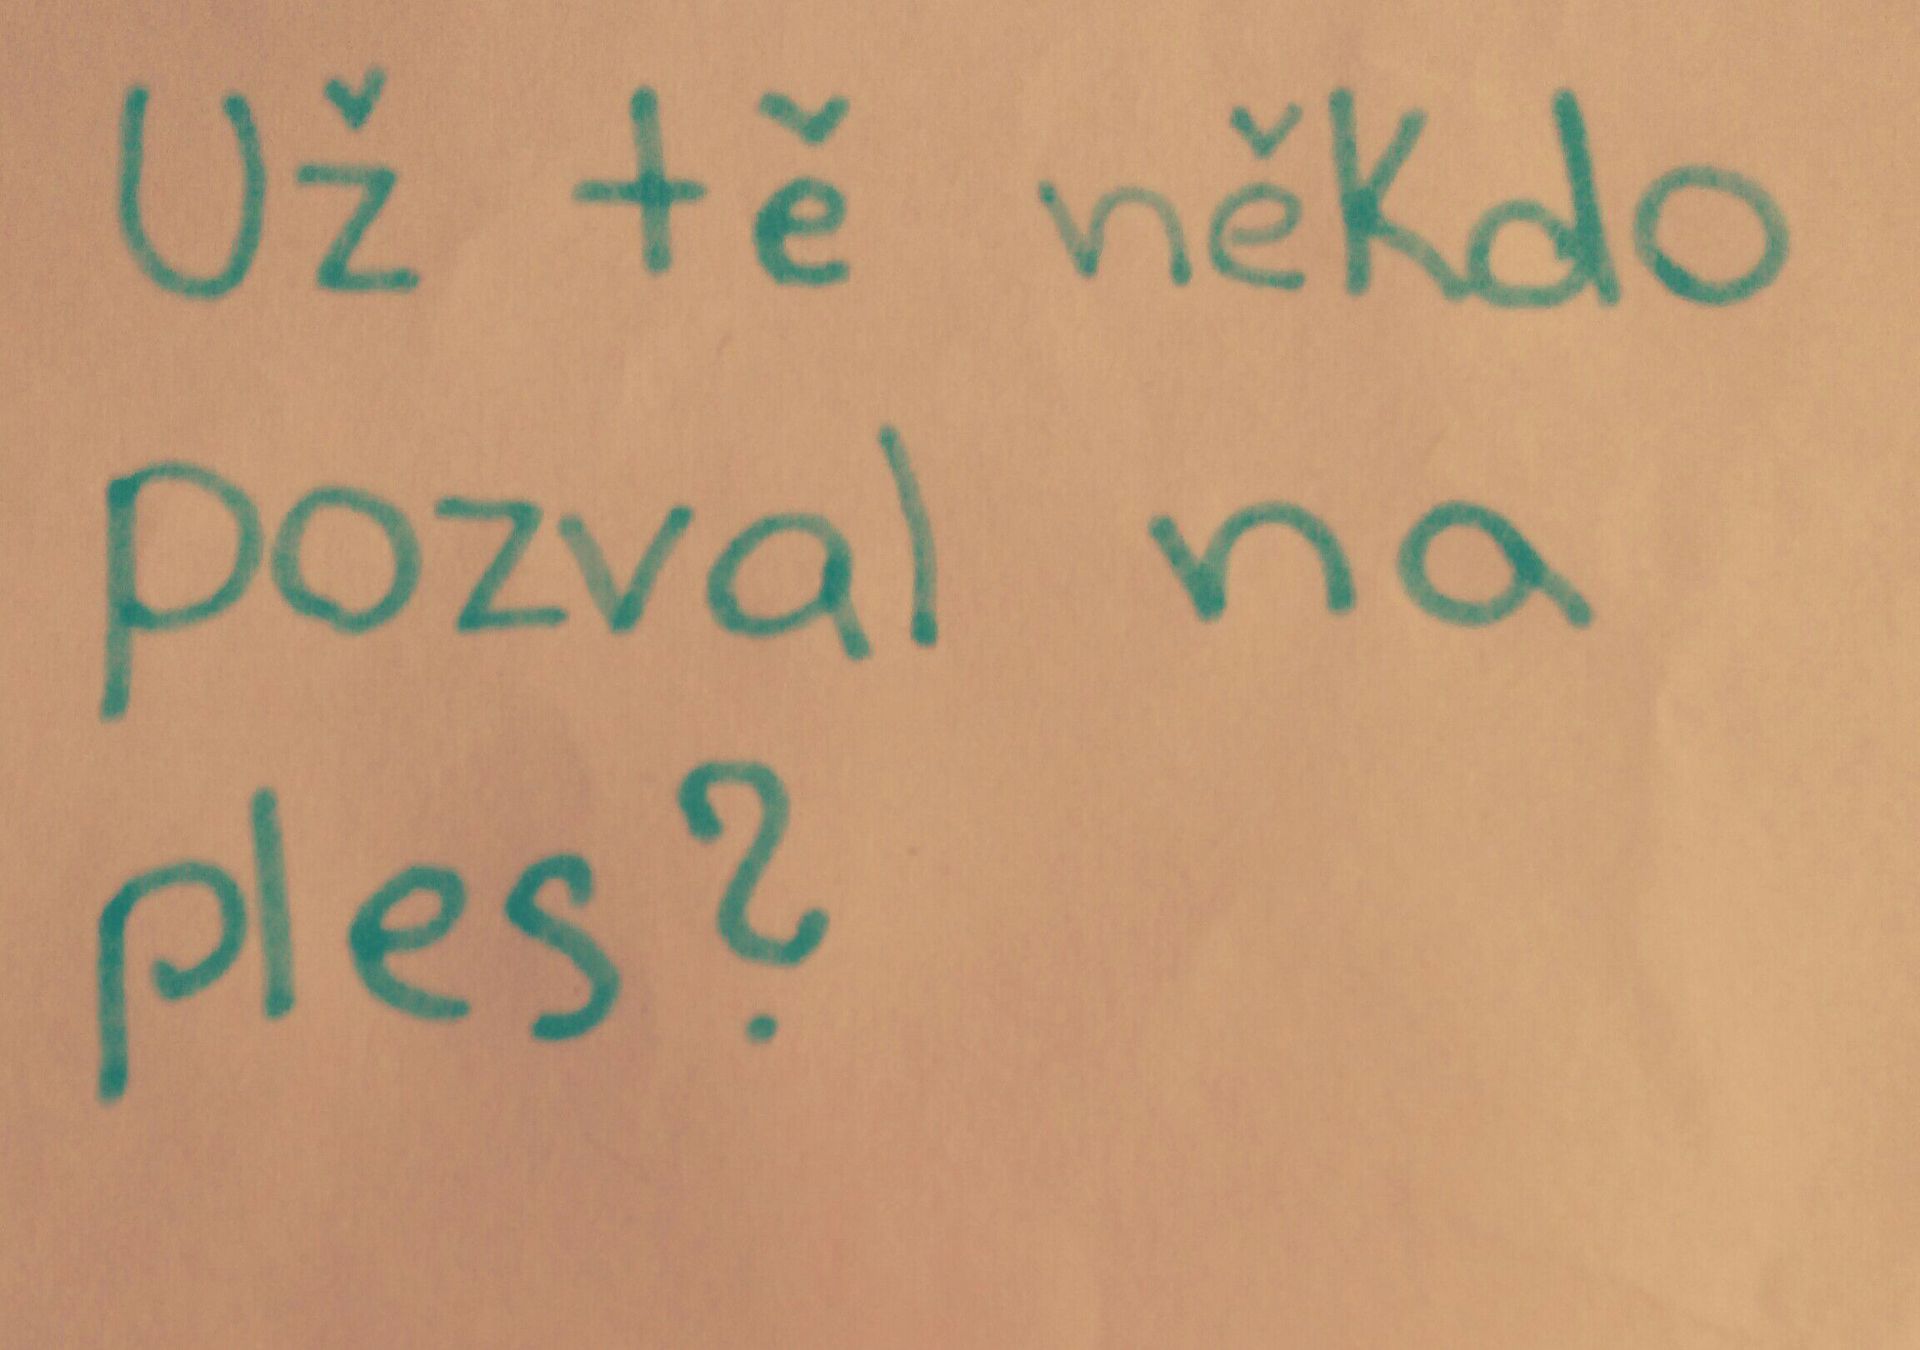 Už tě někdo
pozval na
ples?